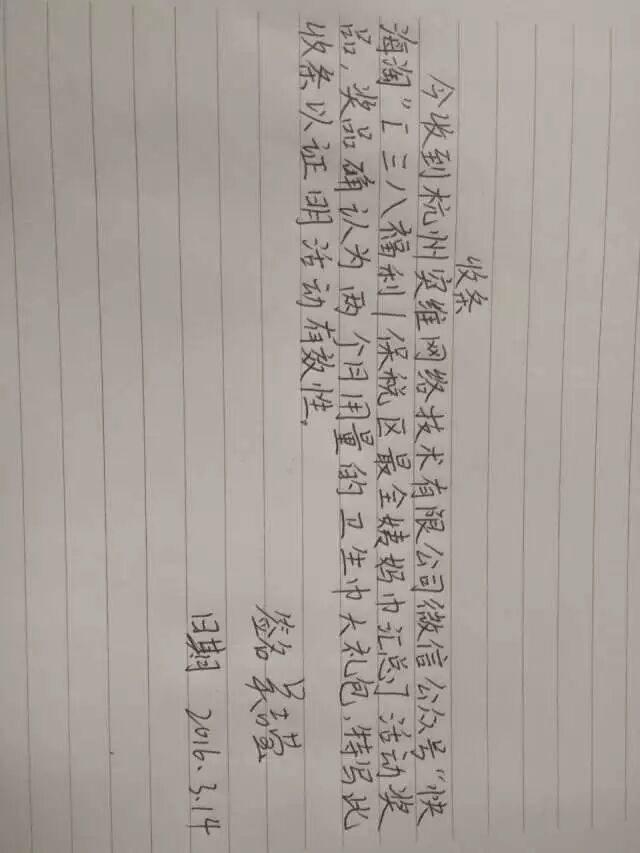 收条
今收到杭州实维网络技术有限公司微信公众号“快
海淘”「三八福利|保税区最全姨妈巾汇总」活动奖
品，奖品确认为两个月用量的卫生巾大礼包，特写此
收条以证明活动有效性。
签名
日期 2016.3.14